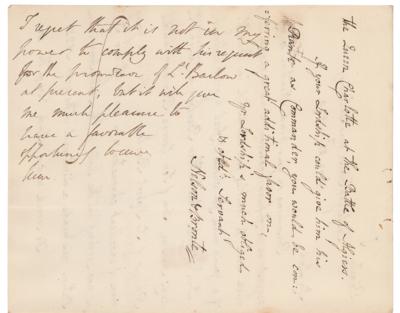 I regret that it is not in my
power to comply with his request
for the promotion of Lt Barlow
at present, but it will give
me much pleasure to
have a favorable
opportunity to serve
him
the Queen Charlotte at the Battle of Algiers.
If your Lordship could give him his
as Commander, you would be con-
ferring a great additional favor on,
yr Lordship's much obliged
& Obdt Servant
Nelson & Bronte